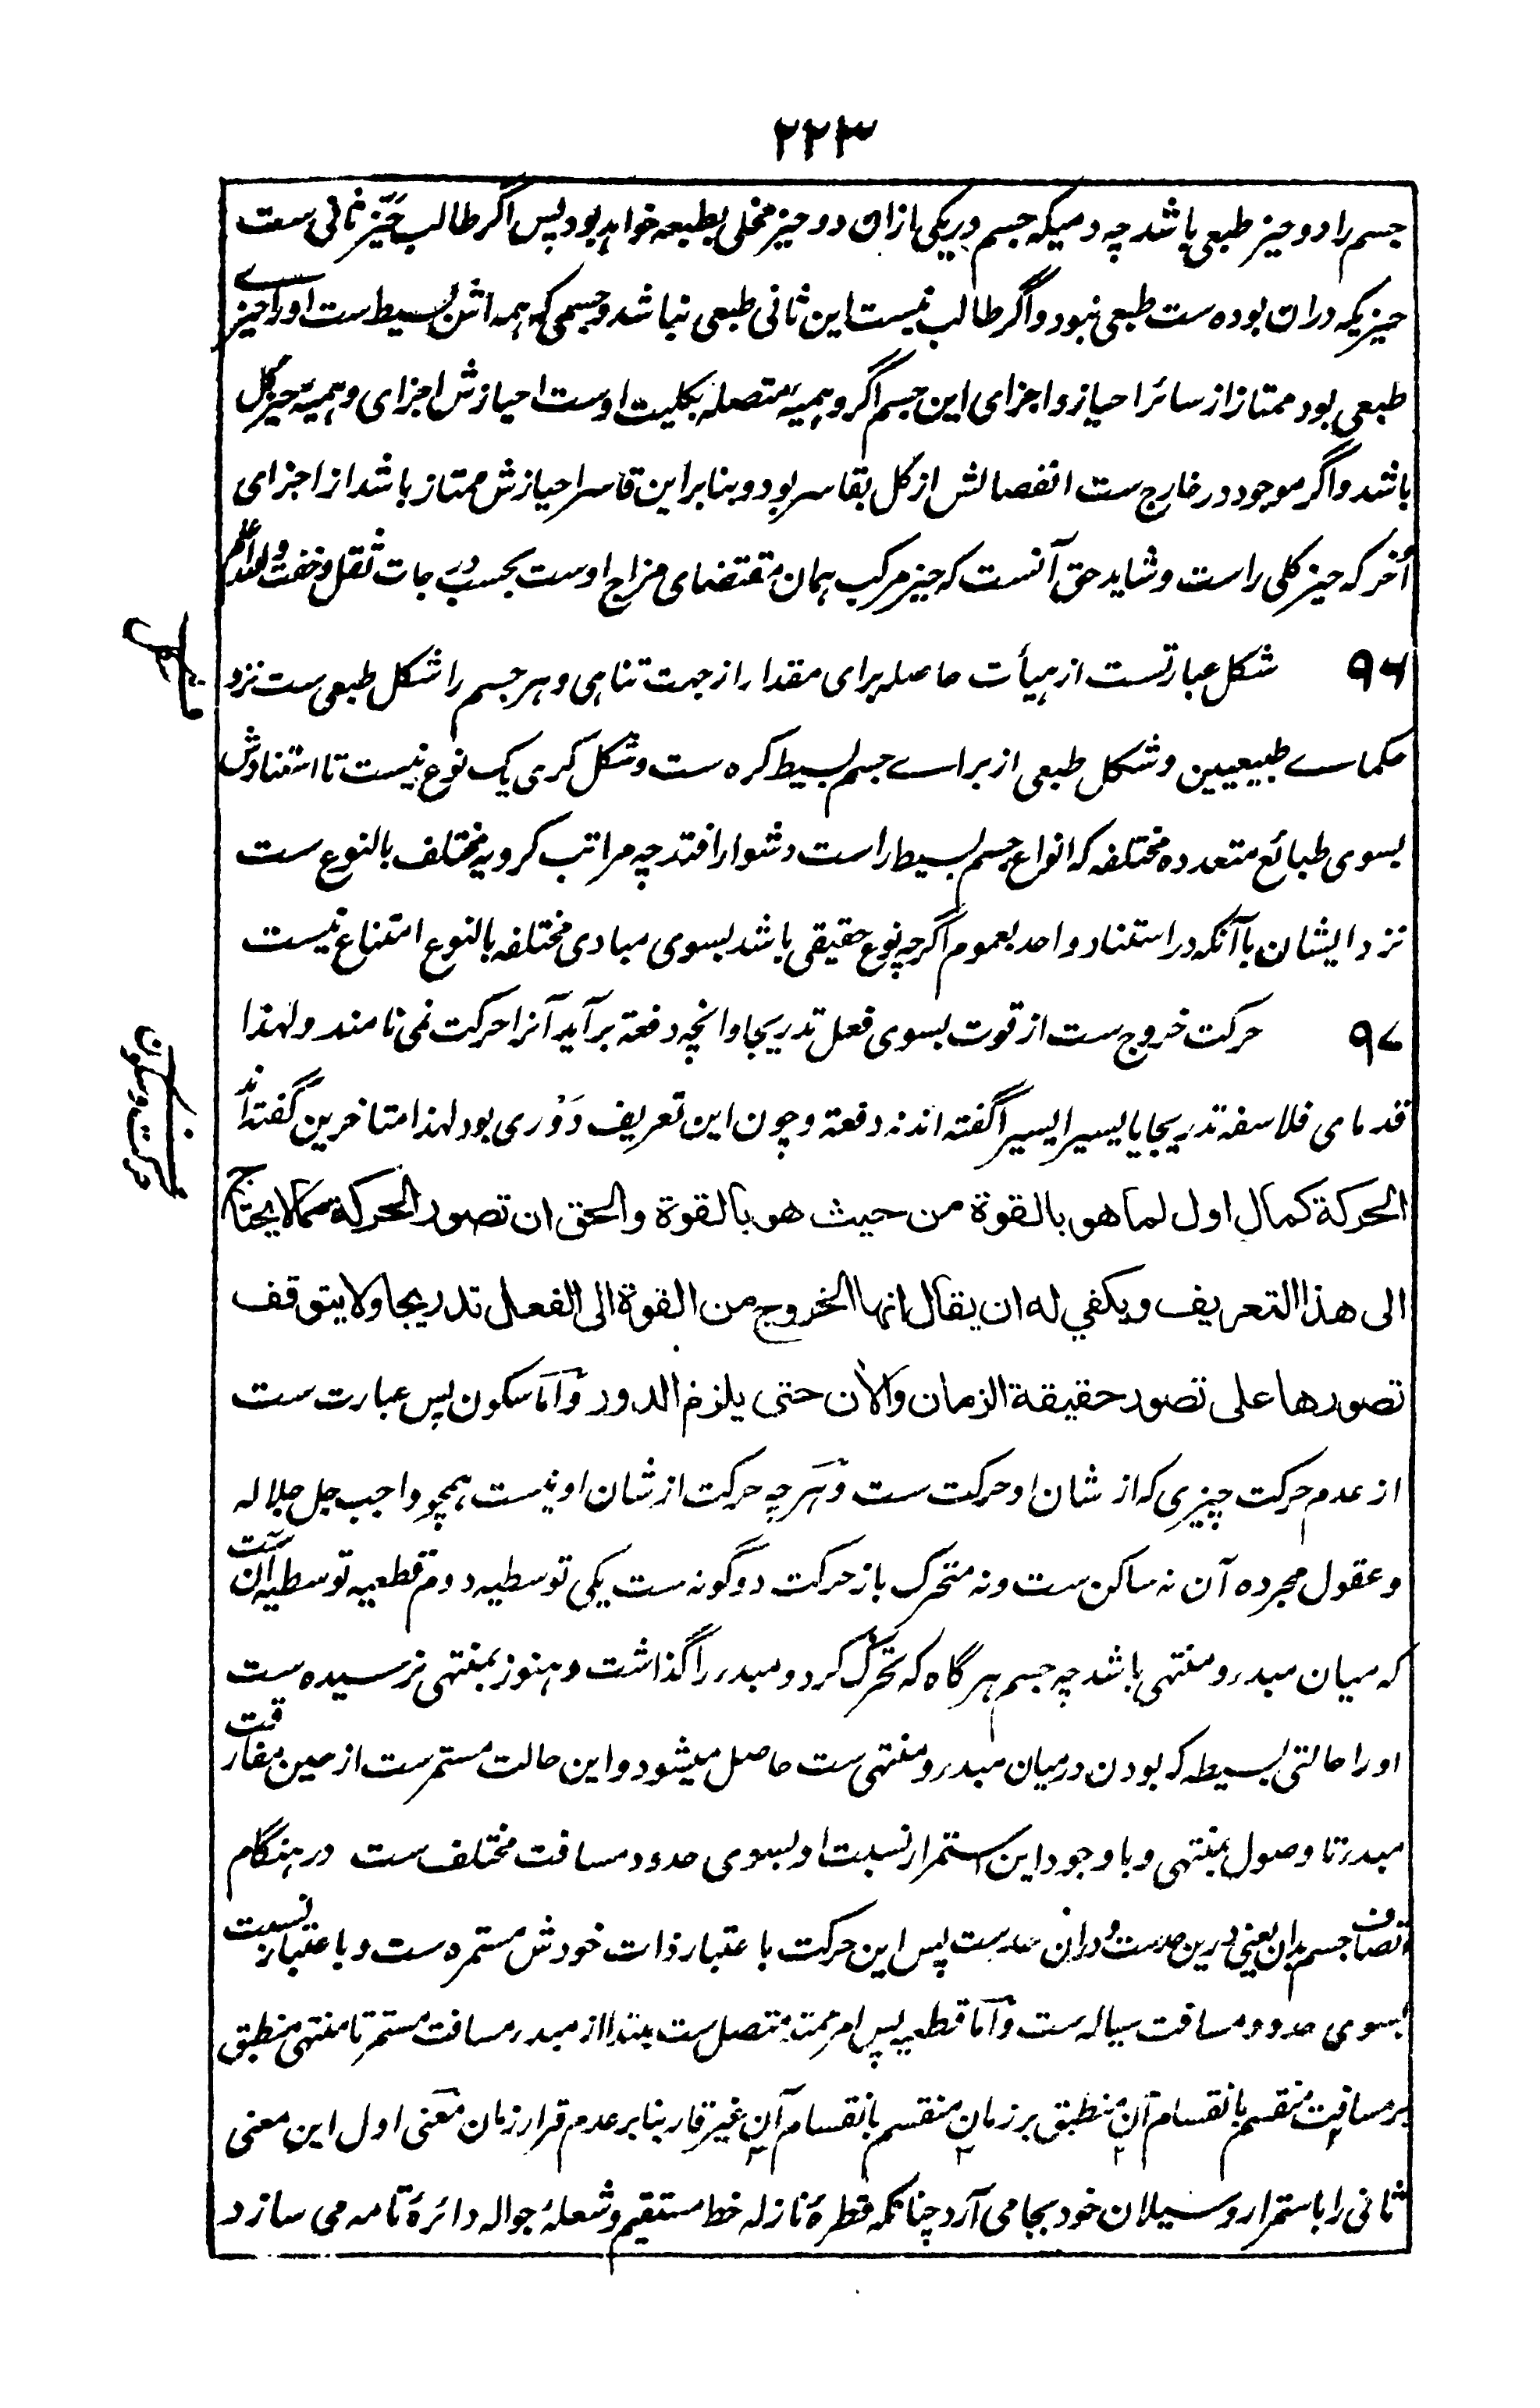 ۲۲۳
جسم را دو حیز طبعی باشد چه دمیکه جسم در یکی ازان دو حیز مخلی بطبعه خواهد بود پس اگر طالب حیّز ثانی ست
حیزیکه دران بوده ست طبعی نبود و اگر طالب نیست این ثانی طبعی نباشد و جسمی که همه اش بسیط ست او را حیزے
طبعی بود ممتاز از سائر احیاز و اجزای این جسم اگر وهمیهٔ متصله بکلیت اوست احیازش اجزای وهمیهٔ حیز کل
باشد و اگر موجود در خارج ست انفصالش از کل بقاسر بود و بنابر این قاسر احیازش ممتاز باشد از اجزای
اُخر که حیز کلی راست و شاید حق آنست که حیز مرکب همان مقتضای مزاج اوست بحسب درجات ثقل و خفت والله اعلم
۹۶ شکل عبارتست از هیأت حاصله برای مقدار از جهت تناهی و هر جسم را شکل طبعی ست نزد
حکماے طبیعیین و شکل طبعی از براے جسم بسیط کره ست و شکل کری یک نوع نیست تا استنادش
بسوی طبائع متعدده مختلفه که انواع جسم بسیط راست دشوار افتد چه مراتب کرویه مختلف بالنوع ست
نزد ایشان با آنکه در استناد واحد بعموم اگرچه بنوع حقیقی باشد بسوی مبادی مختلفه بالنوع امتناع نیست
۹۷ حرکت خروج ست از قوت بسوی فعل تدریجا وانچه دفعة برآید آنرا حرکت نمی نامند ولهذا
حرکت و سکون
قدمای فلاسفه تدریجا یا یسیرا یسیرا گفته اند نه دفعة و چون این تعریف دَوْری بود لهذا متاخرین گفته اند
الحركة كمال اول لما هو بالقوة من حيث هو بالقوة والحق ان تصور الحركة مما لا يحتاج
الى هذا التعريف ويكفي له ان يقال انها الخروج من القوة الى الفعل تدريجا ولا يتوقف
تصورها على تصور حقيقة الزمان والآن حتى يلزم الدور وامّا سکون پس عبارت ست
از عدم حرکت چیزی که از شان او حرکت ست و هرچه حرکت از شان او نیست همچو واجب جل جلاله
و عقول مجرده آن نه ساکن ست و نه متحرک باز حرکت دو گونه ست یکی توسطیه دوم قطعیه توسطیه آن ست
که میان مبدء و منتهی باشد چه جسم هرگاه که تحرک کرد و مبدء را گذاشت و هنوز بمنتهی نرسیده ست
او را حالتی بسیطه که بودن درمیان مبدء و منتهی ست حاصل میشود و این حالت مستمرست از حین مفارقت
مبدء تا وصول بمنتهی و با وجود این استمرار نسبت او بسوی حدود مسافت مختلف ست در هنگام
اتصاف جسم بدان یعنی درین حدست و دران حدست پس این حرکت با عتبار ذات خودش مستمره ست و باعتبار نسبت
بسوی حدود مسافت سیاله ست و امّا قطعیه پس امر ممتد متصل ست مبتدا از مبدء مسافت مستمر تا منتهی منطبق
بر مسافت منقسم بانقسام آن منطبق بر زمان منقسم بانقسام آن غیر قار بنابر عدم قرار زمان معنی اول این معنی
ثانی را باستمرار و سیلان خود بجا می آرد چنانکه قطرهٔ نازله خط مستقیم و شعلهٔ جواله دائرهٔ تامه می سازد